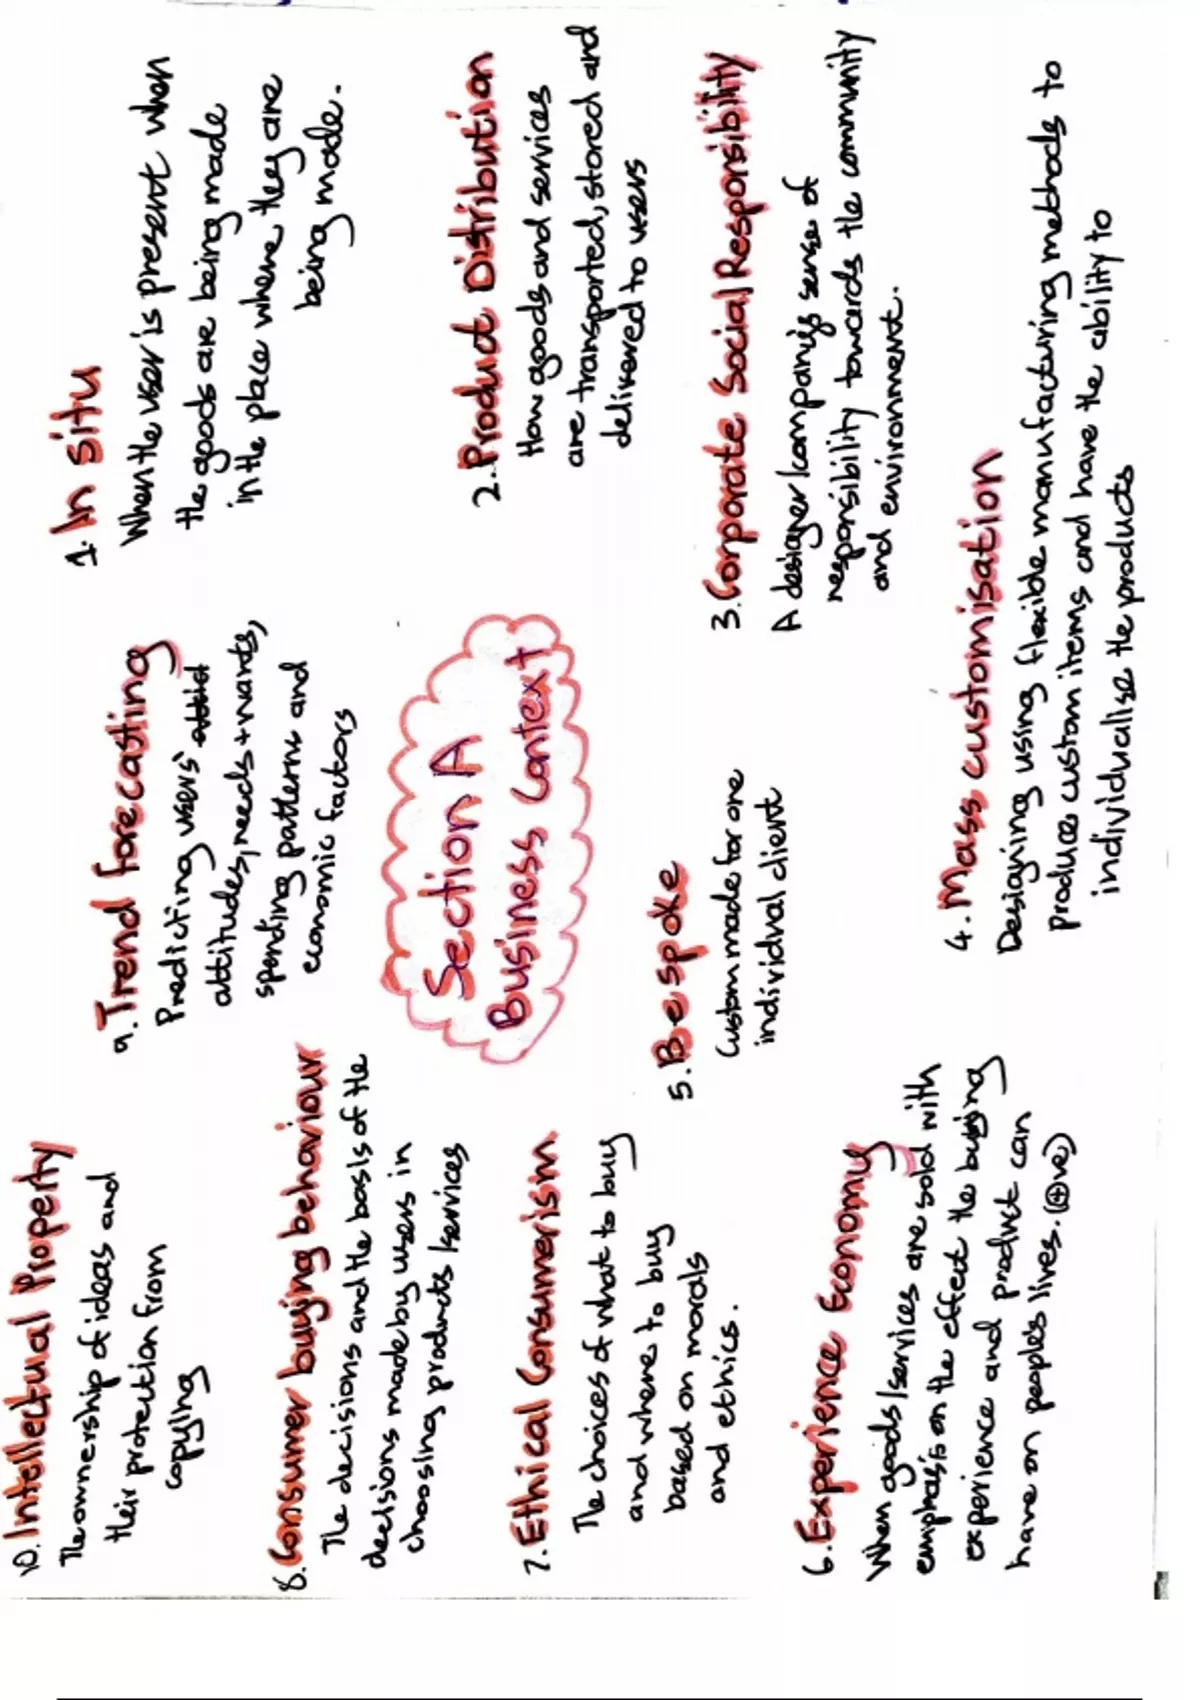 Section A
Business Context
1. In situ
When the user is present when
the goods are being made
in the place where they are
being made.
2. Product Distribution
How goods and services
are transported, stored and
delivered to users
3. Corporate Social Responsibility
A designer/company's sense of
responsibility towards the community
and environment.
4. Mass customisation
Designing using flexible manufacturing methods to
produce custom items and have the ability to
individualise the products
5. Bespoke
Custom made for one
individual client
6. Experience Economy
When goods/services are sold with
emphasis on the effect the buying
experience and product can
have on people's lives. (+ve)
7. Ethical Consumerism
The choices of what to buy
and where to buy
based on morals
and ethics.
8. Consumer buying behaviour
The decisions and the basis of the
decisions made by users in
choosing products/services
9. Trend forecasting
Predicting users'
attitudes, needs + wants,
spending patterns and
economic factors
10. Intellectual Property
The ownership of ideas and
their protection from
copying